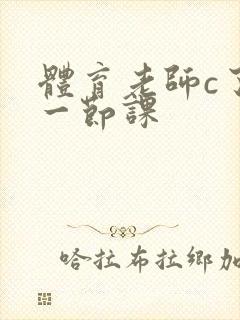 體育老師c了
一節課
哈拉布拉鄉加